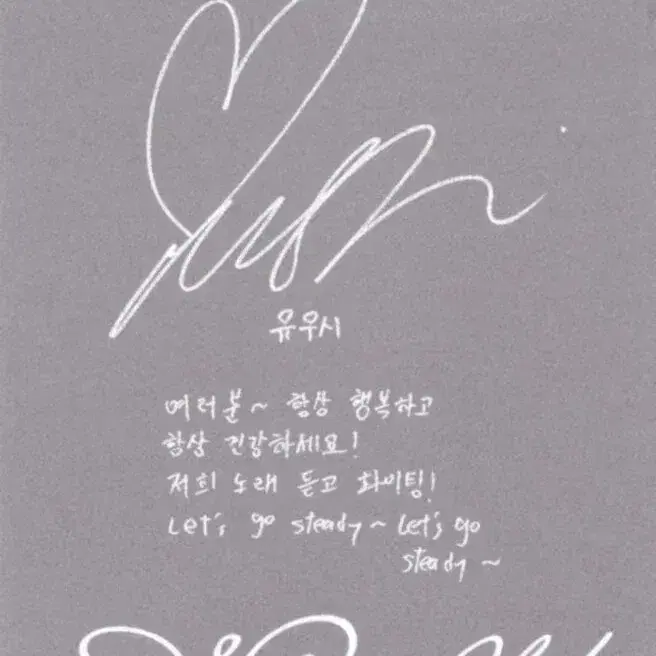 Yushi
유우시
여러분~ 항상 행복하고
항상 건강하세요!
저희 노래 듣고 화이팅!
Let's go steady~ Let's go
steady~